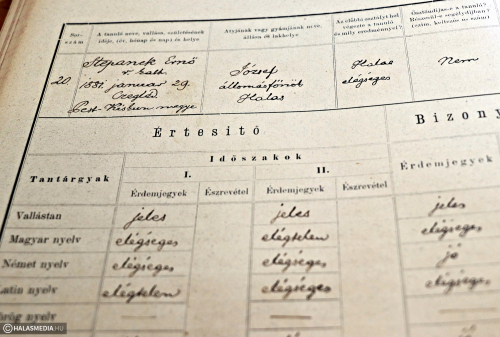 Sor-
szám
A tanuló neve, vallása, születésének
ideje, (év, hónap és nap) és helye
Atyjának vagy gyámjának neve,
állása és lakhelye
Az előbbi osztályt hol
végezte a tanuló
és mily eredménnyel?
Ösztöndíjas-e a tanuló
20.
Stepanek Ernő
r. kath.
1881. január 29.
Czegléd
Pest-Kiskun megye
József
állomásfőnök
Halas
Halas
elégséges
Nem
Értesítő
Bizony
Időszakok
Tantárgyak
I.
II.
Érdemjegyek
Észrevétel
Érdemjegyek
Észrevétel
Érdemjegyek
Vallástan
jeles
jeles
jeles
Magyar nyelv
elégséges
elégtelen
elégséges
Német nyelv
elégséges
elégséges
jó
Latin nyelv
elégtelen
elégséges
elégséges
örög nyelv
© HALASMEDIA.HU